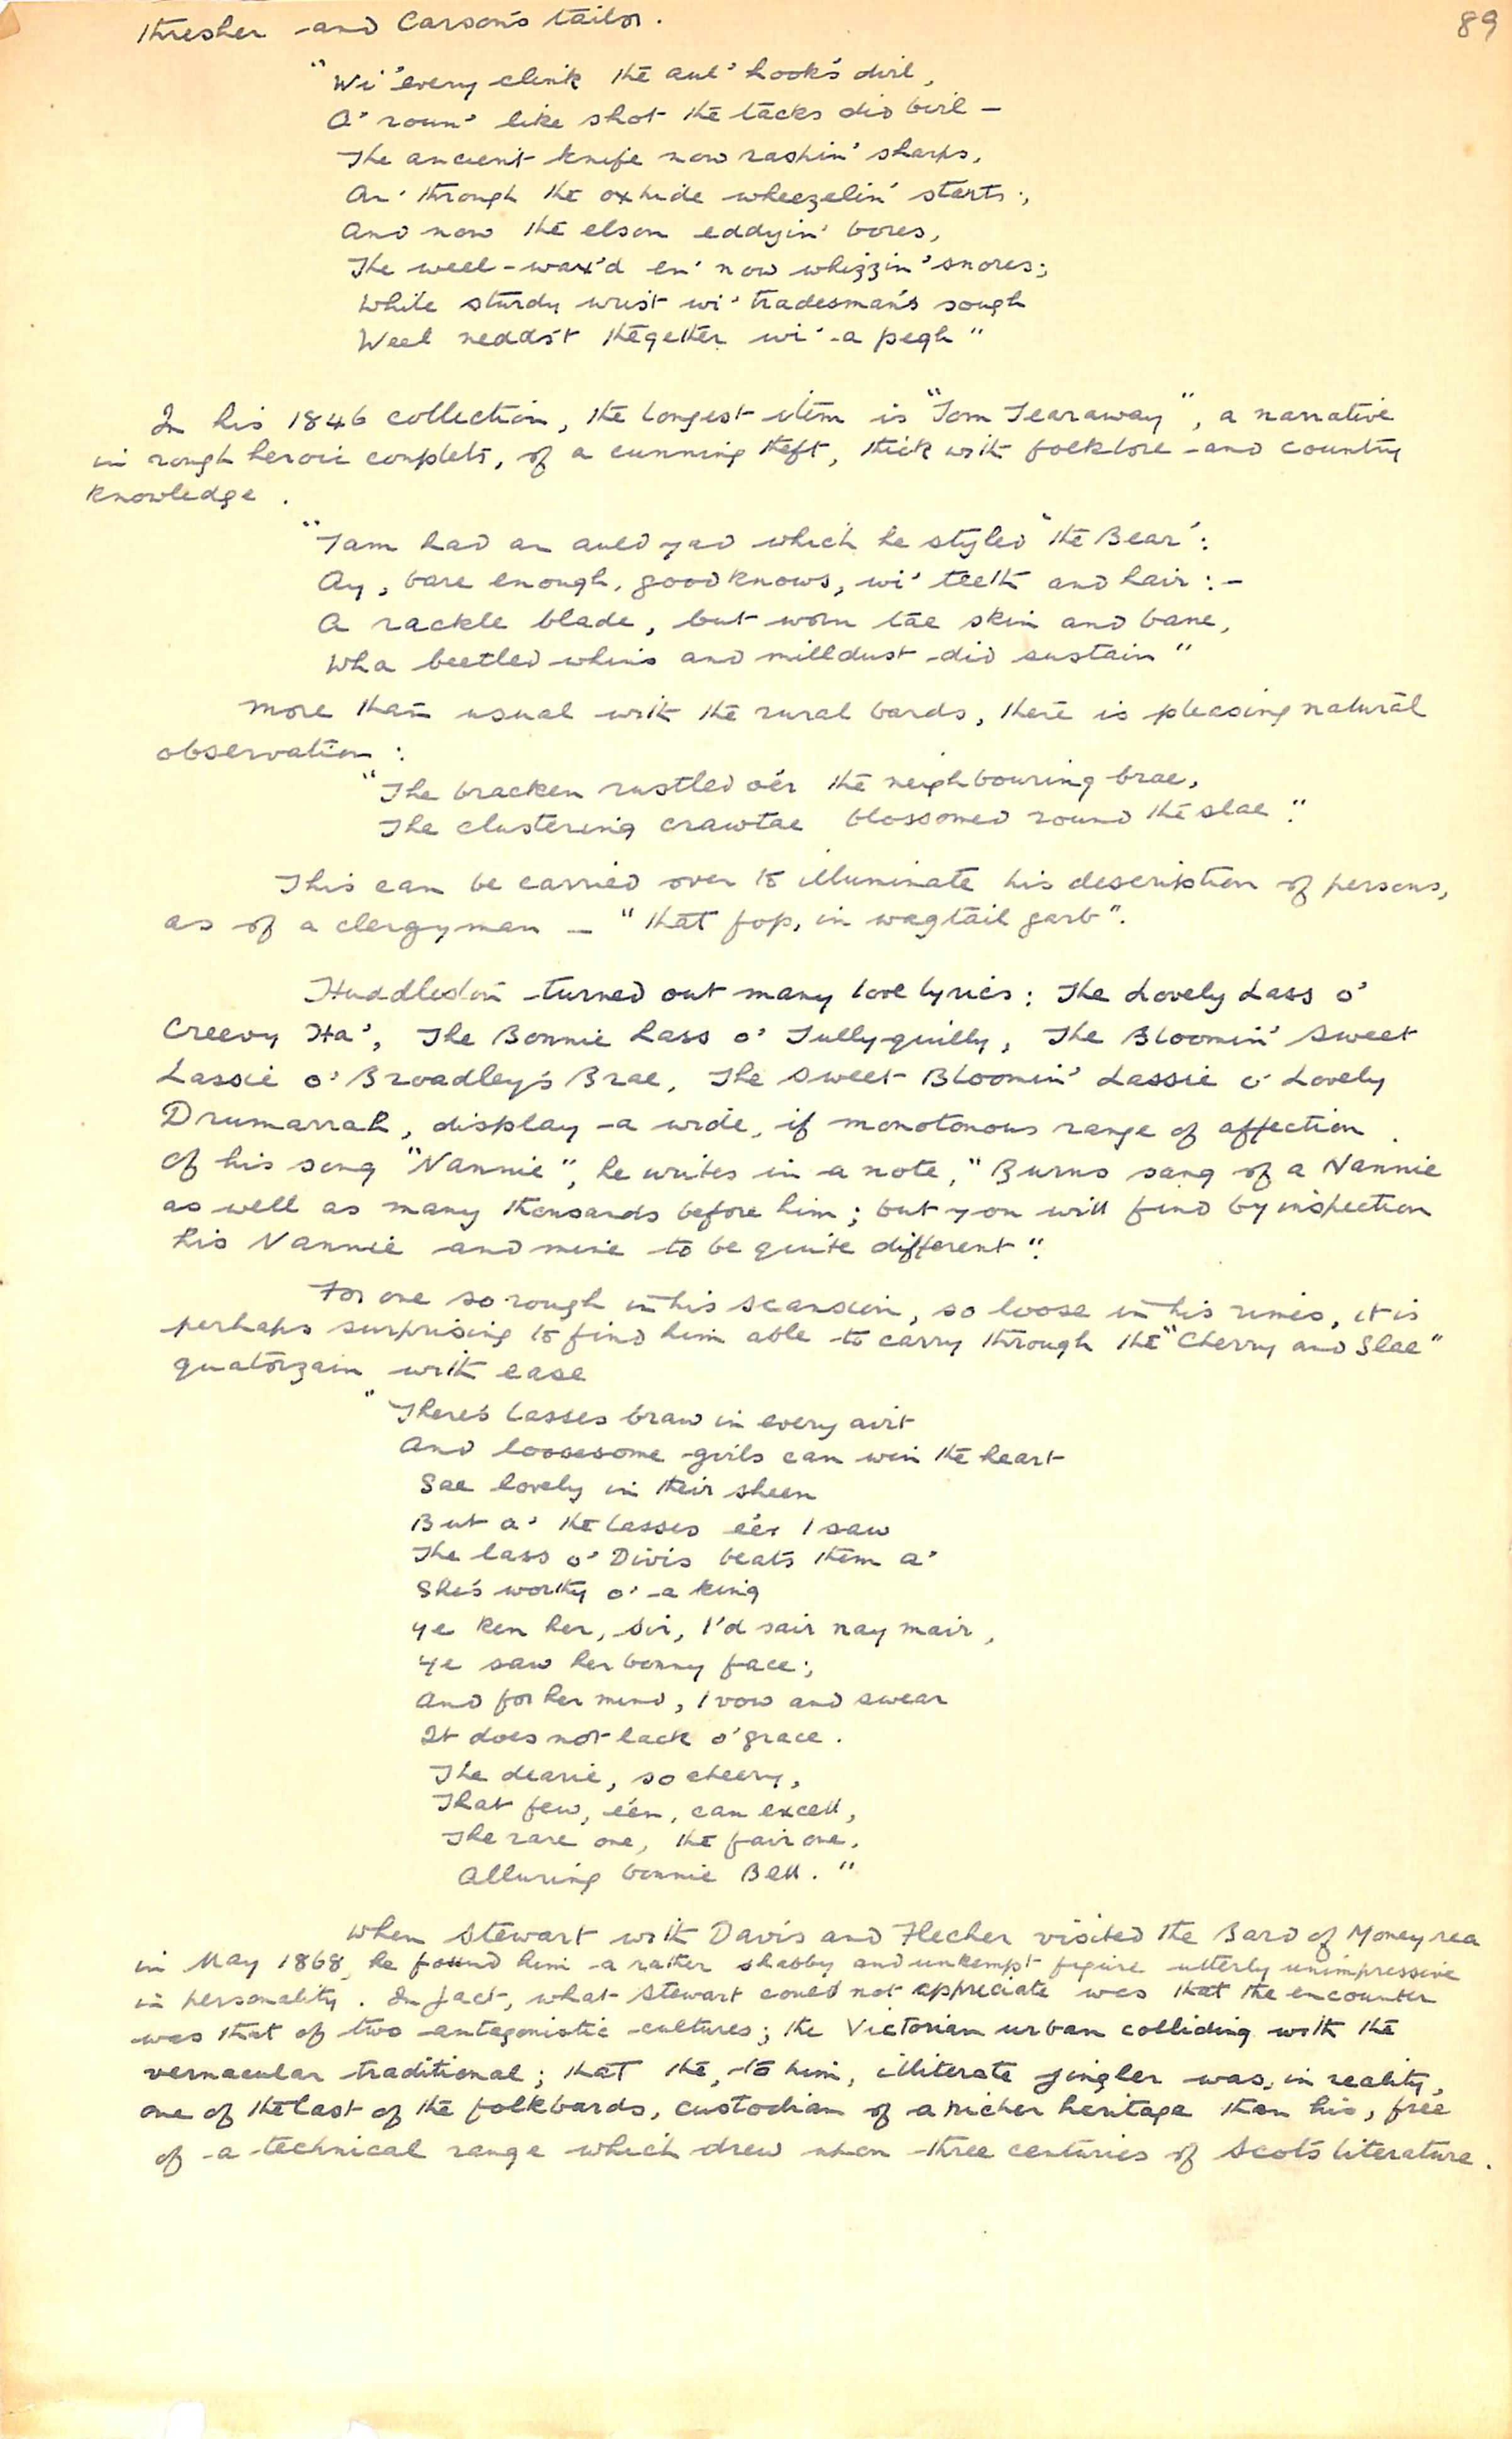 89
thresher and Carson's tailor.
"Wi' every clink the aul' hook's dirl,
A' roun' like shot the tacks did birl –
The ancient knife now raspin' sharps,
An' through the oxhide wheezelin' starts;
And now the elson eddyin' bores,
The weel-wax'd en' now whizzin' snores;
While sturdy wrist wi' tradesman's sough
Weel thegether wi' a pegh"
In his 1846 collection, the longest item is "Tom Tearaway", a narrative
in rough heroic couplets, of a cunning theft, thick with folklore and country
knowledge.
"Tam had an auld yad which he styled 'the Bear':
Ay, bare enough, good knows, wi' teeth and hair:–
A rackle blade, but worn tae skin and bane,
Wha beetled whins and milldust did sustain"
More than usual with the rural bards, there is pleasing natural
observation:
"The bracken rustled o'er the neighbouring brae,
The clustering crawtae blossomed round the slae."
This can be carried over to illuminate his description of persons,
as of a clergyman – "that fop, in wagtail garb".
Huddleston turned out many love lyrics: The Lovely Lass o'
Creevy Ha', The Bonnie Lass o' Tullyquilly, The Bloomin' Sweet
Lassie o' Broadley's Brae, The Sweet Bloomin' Lassie o' Lovely
Drumarrah, display a wide, if monotonous range of affection.
Of his song "Nannie", he writes in a note, "Burns sang of a Nannie
as well as many thousands before him; but you will find by inspection
his Nannie and mine to be quite different".
For one so rough in his scansion, so loose in his rimes, it is
perhaps surprising to find him able to carry through the "Cherry and Slae"
quatorzain with ease
"There's lasses braw in every airt
And loosesome girls can win the heart
Sae lovely in their sheen
But a' the lasses e'er I saw
The lass o' Divis beats them a'
She's worthy o' a king
Ye ken her, Sir, I'd sair nay mair,
Ye saw her bonny face;
And for her mind, I vow and swear
It does not lack o' grace.
The dearie, so cheery,
That few, e'en, can excell,
The rare one, the fair one,
Alluring bonnie Bell."
When Stewart with Davis and Flecher visited the Bard of Moneyrea
in May 1868, he found him a rather shabby and unkempt figure utterly unimpressive
in personality. In fact, what Stewart could not appreciate was that the encounter
was that of two antagonistic cultures; the Victorian urban colliding with the
vernacular traditional; that the, to him, illiterate jingler was, in reality,
one of the last of the folkbards, custodian of a richer heritage than his, free
of a technical range which drew upon three centuries of Scots literature.